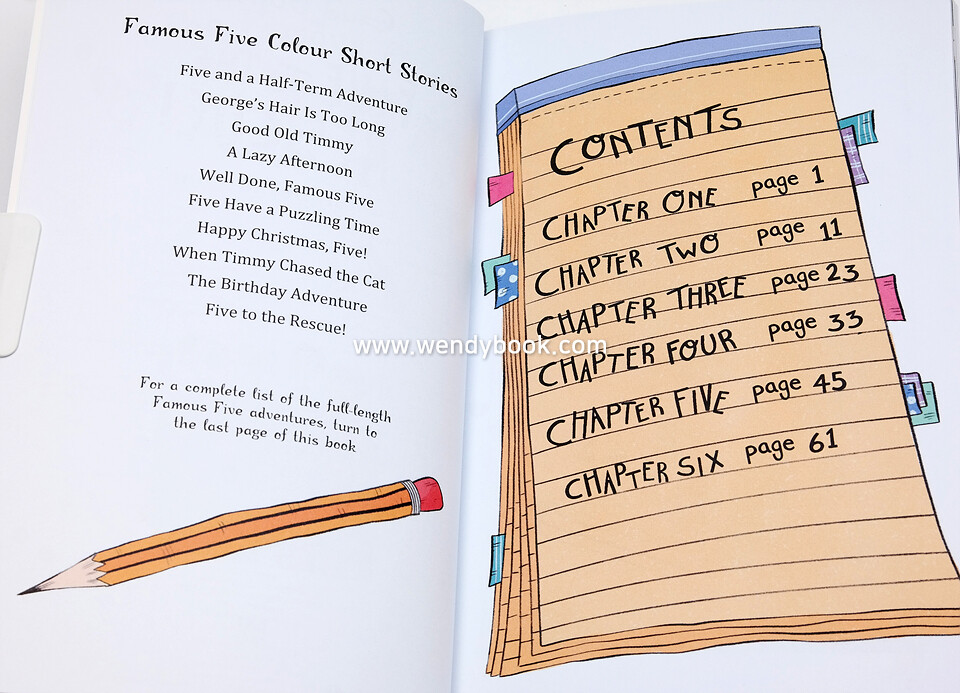 Famous Five Colour Short Stories
Five and a Half-Term Adventure
George's Hair Is Too Long
Good Old Timmy
A Lazy Afternoon
Well Done, Famous Five
Five Have a Puzzling Time
Happy Christmas, Five!
When Timmy Chased the Cat
The Birthday Adventure
Five to the Rescue!
For a complete list of the full-length
Famous Five adventures, turn to
the last page of this book
CONTENTS
CHAPTER ONE page 1
CHAPTER TWO page 11
CHAPTER THREE page 23
CHAPTER FOUR page 33
CHAPTER FIVE page 45
CHAPTER SIX page 61
www.wendybook.com